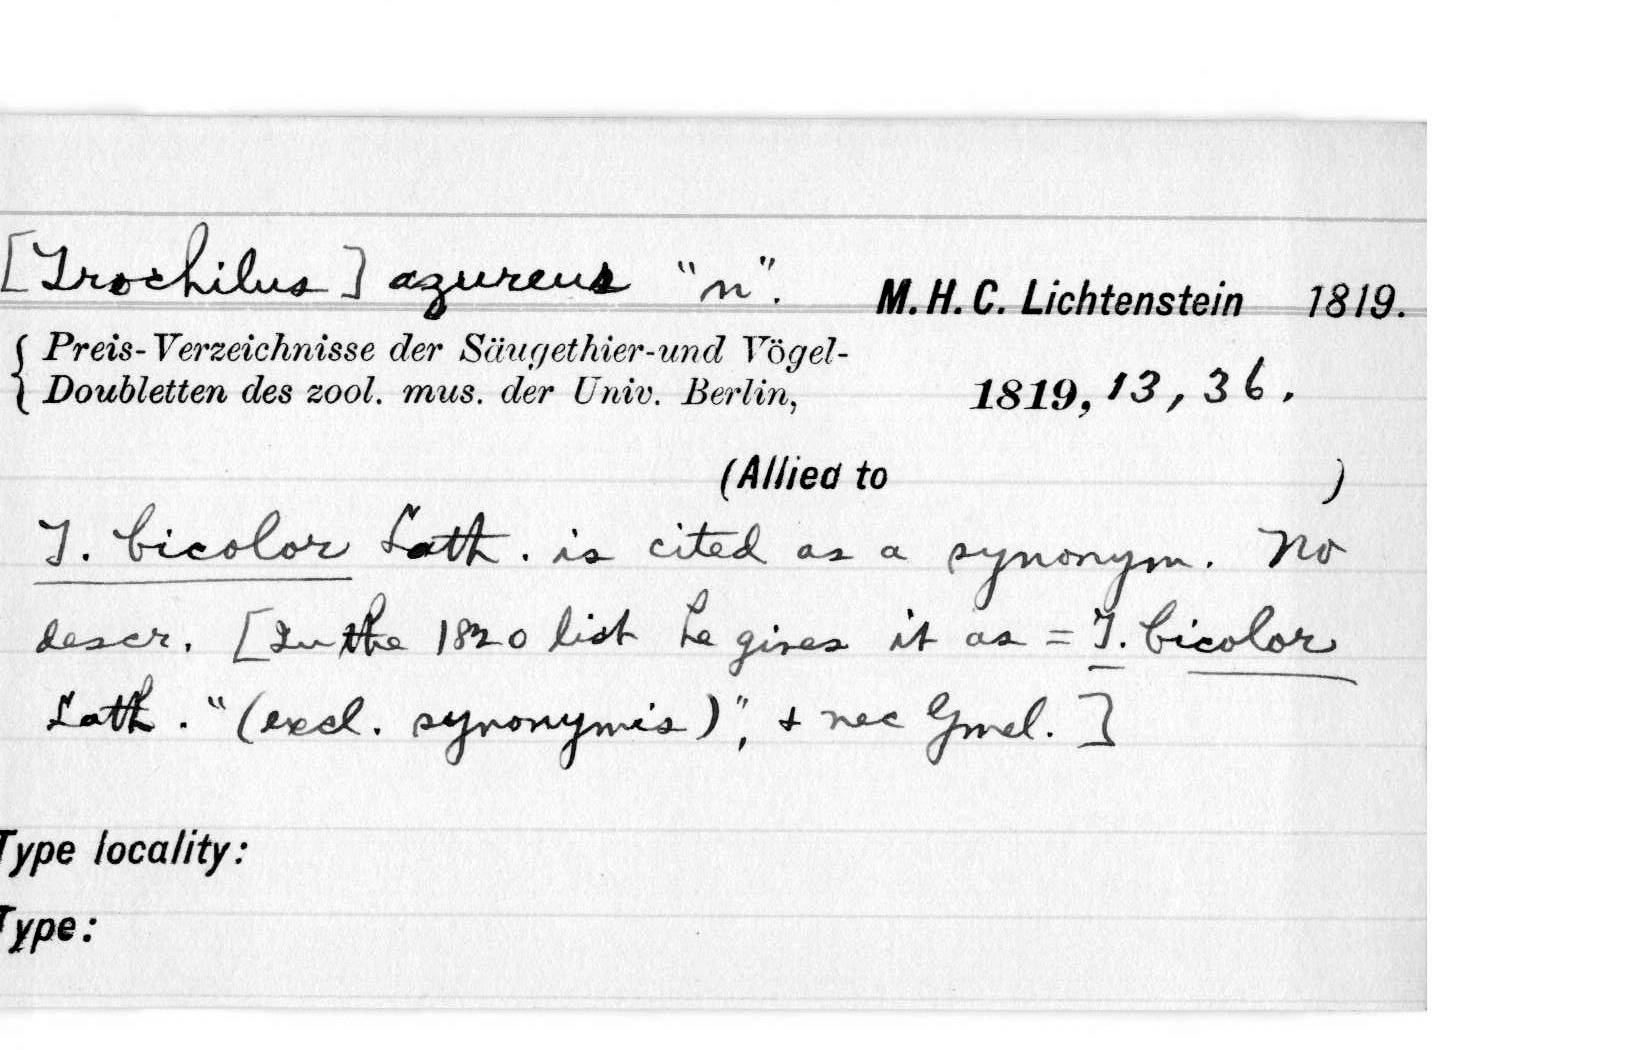 [Trochilus] azureus "n". M.H.C. Lichtenstein 1819.
{ Preis-Verzeichnisse der Säugethier-und Vögel-
Doubletten des zool. mus. der Univ. Berlin, 1819, 13, 36.
(Allied to )
T. bicolor Lath. is cited as a synonym. No
descr. [In the 1820 list he gives it as = T. bicolor
Lath. "(excl. synonymis)", + nec Gmel.]
Type locality:
Type: